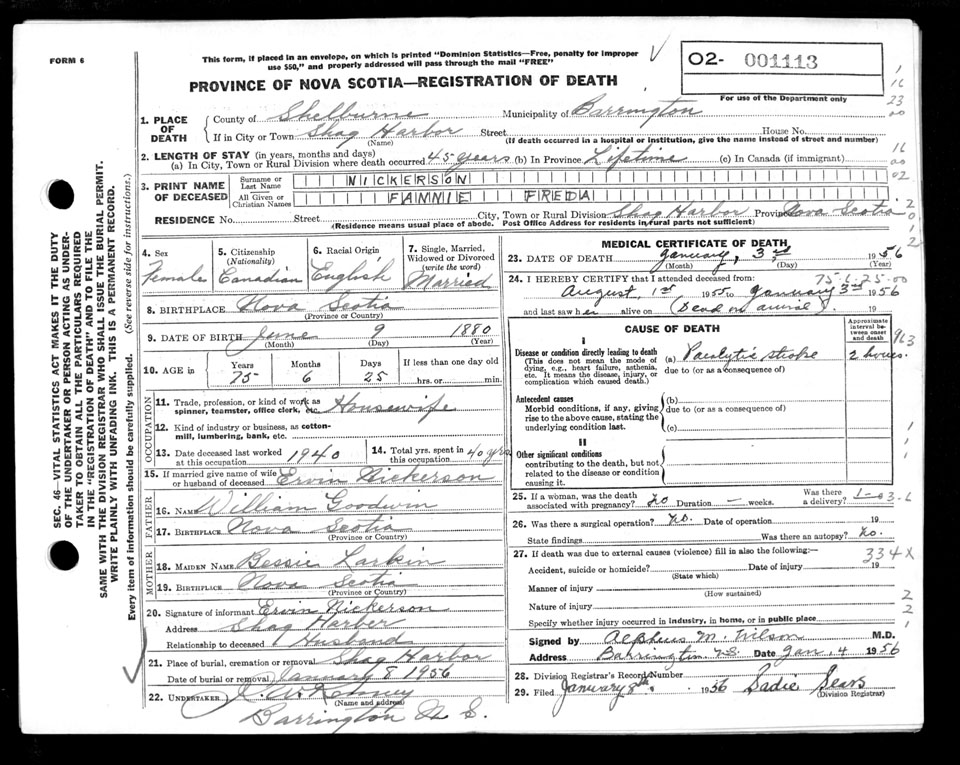 FORM 6
This form, if placed in an envelope, on which is printed "Dominion Statistics—Free, penalty for improper
use $50," and properly addressed will pass through the mail "FREE"
PROVINCE OF NOVA SCOTIA—REGISTRATION OF DEATH
O2- 001113
For use of the Department only
1. PLACE OF DEATH
County of Shelburne Municipality of Barrington
If in City or Town Shag Harbor Street House No.
(Name) (If death occurred in a hospital or institution, give the name instead of street and number)
2. LENGTH OF STAY (in years, months and days)
(a) In City, Town or Rural Division where death occurred 45 years (b) In Province Lifetime (c) In Canada (if immigrant)
3. PRINT NAME OF DECEASED
Surname or Last Name NICKERSON
All Given or Christian Names FANNIE FREDA
RESIDENCE No. Street City, Town or Rural Division Shag Harbor Province Nova Scotia
(Residence means usual place of abode. Post Office Address for residents in rural parts not sufficient)
4. Sex
Female
5. Citizenship (Nationality)
Canadian
6. Racial Origin
English
7. Single, Married, Widowed or Divorced (write the word)
Married
8. BIRTHPLACE Nova Scotia
(Province or Country)
9. DATE OF BIRTH June 9 1880
(Month) (Day) (Year)
10. AGE in Years Months Days If less than one day old
75 6 25 hrs. or min.
OCCUPATION
11. Trade, profession, or kind of work as
spinner, teamster, office clerk, etc. Housewife
12. Kind of industry or business, as cotton-
mill, lumbering, bank, etc.
13. Date deceased last worked at this occupation 1940
14. Total yrs. spent in this occupation 40 yrs
15. If married give name of wife or husband of deceased Ervin Nickerson
FATHER
16. NAME William Goodwin
17. BIRTHPLACE Nova Scotia
(Province or Country)
MOTHER
18. MAIDEN NAME Bessie Larkin
19. BIRTHPLACE Nova Scotia
(Province or Country)
20. Signature of informant Ervin Nickerson
Address Shag Harber
Relationship to deceased Husband
21. Place of burial, cremation or removal Shag Harbor
Date of burial or removal January 8 1956
22. UNDERTAKER
(Name and address)
Barrington N S.
MEDICAL CERTIFICATE OF DEATH
23. DATE OF DEATH January, 3rd 1956
(Month) (Day) (Year)
24. I HEREBY CERTIFY that I attended deceased from:
75-6-25-00
August, 1st 1955 to January 3rd 1956
and last saw her alive on (Dead on arrival) 19
CAUSE OF DEATH
Approximate interval between onset and death
I
Disease or condition directly leading to death
(This does not mean the mode of
dying, e.g., heart failure, asthenia,
etc. It means the disease, injury, or
complication which caused death.)
(a) Paralytic stroke 2 hours.
due to (or as a consequence of)
Antecedent causes
Morbid conditions, if any, giving
rise to the above cause, stating the
underlying condition last.
(b)
due to (or as a consequence of)
(c)
II
Other significant conditions
contributing to the death, but not
related to the disease or condition
causing it.
25. If a woman, was the death associated with pregnancy? No Duration — weeks. Was there a delivery?
26. Was there a surgical operation? No. Date of operation 19
State findings Was there an autopsy? No.
27. If death was due to external causes (violence) fill in also the following:—
334X
Accident, suicide or homicide? Date of injury 19
(State which)
Manner of injury
(How sustained)
Nature of injury
Specify whether injury occurred in industry, in home, or in public place
Signed by Alpheus M. Wilson M.D.
Address Barrington N.S. Date Jan. 4 1956
28. Division Registrar's Record Number
29. Filed January 8th 1956 Sadie Sears
(Division Registrar)
SEC. 46—VITAL STATISTICS ACT MAKES IT THE DUTY
OF THE UNDERTAKER OR PERSON ACTING AS UNDER-
TAKER TO OBTAIN ALL THE PARTICULARS REQUIRED
IN THE "REGISTRATION OF DEATH" AND TO FILE THE
SAME WITH THE DIVISION REGISTRAR WHO SHALL ISSUE THE BURIAL PERMIT.
WRITE PLAINLY WITH UNFADING INK. THIS IS A PERMANENT RECORD.
Every item of information should be carefully supplied. (See reverse side for instructions.)